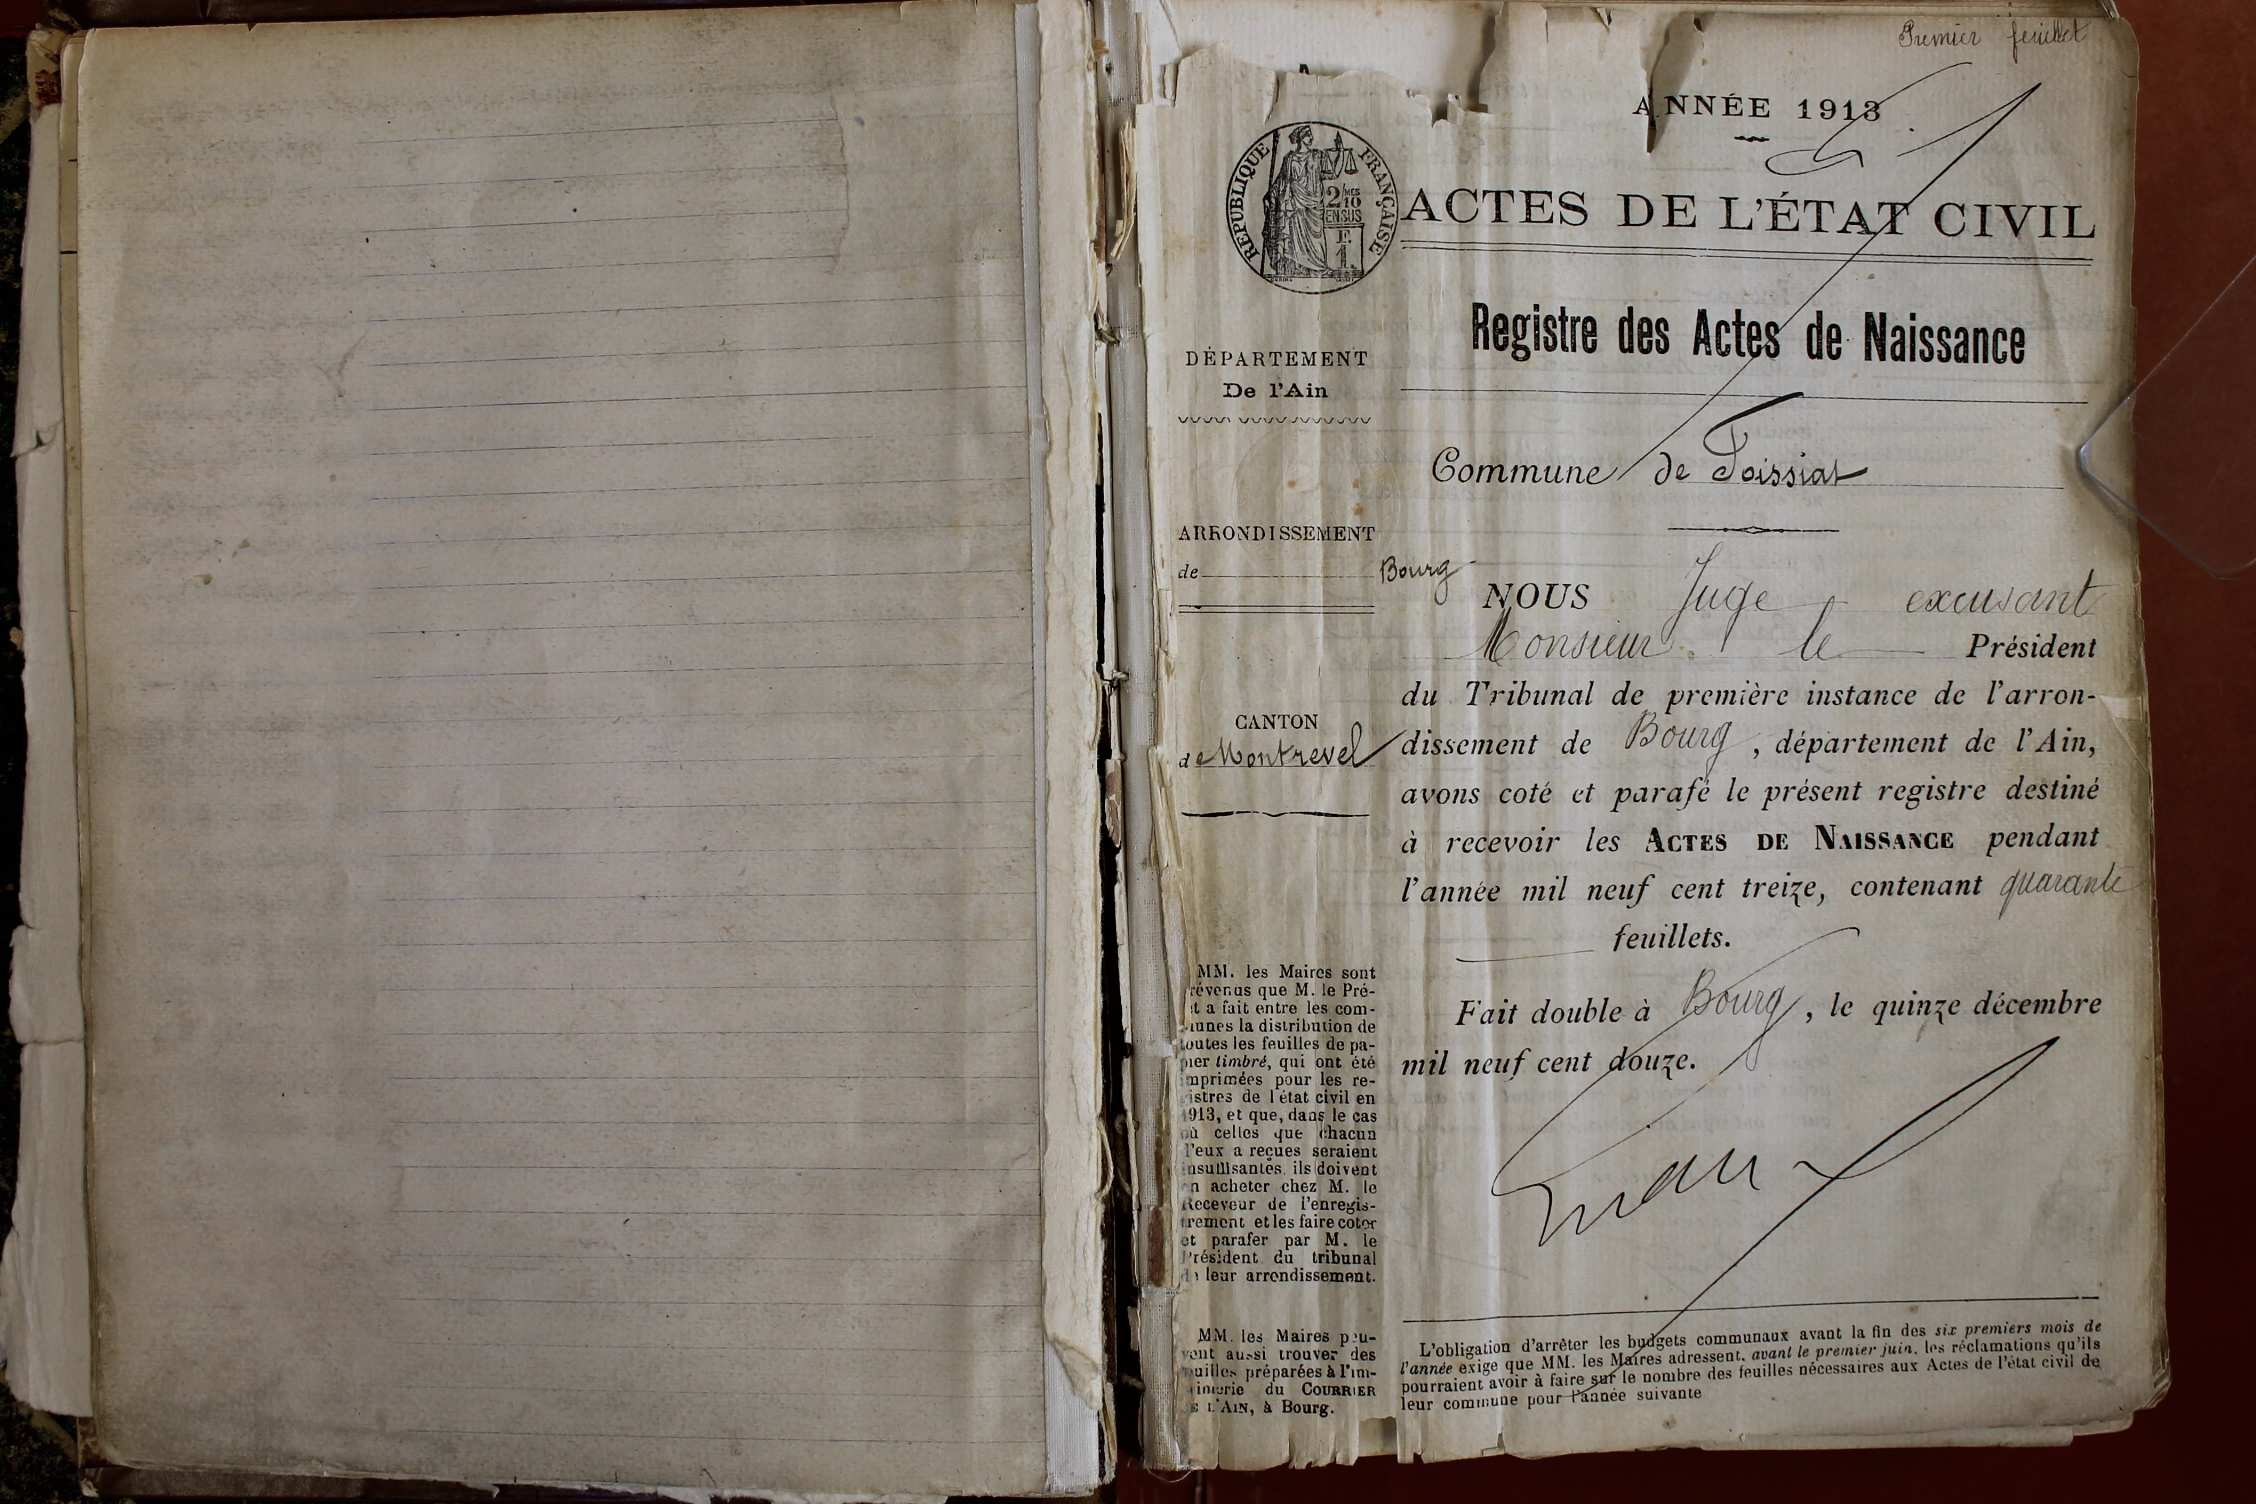 Premier feuillet
ANNÉE 1913
RÉPUBLIQUE FRANÇAISE
2/10MES
EN SUS
F.
1.
ACTES DE L'ÉTAT CIVIL
Registre des Actes de Naissance
Commune de Foissiat
DÉPARTEMENT
De l'Ain
ARRONDISSEMENT
de Bourg
CANTON
de Montrevel
MM. les Maires sont
révenus que M. le Pré-
et a fait entre les com-
munes la distribution de
toutes les feuilles de pa-
pier timbré, qui ont été
imprimées pour les re-
istres de l'état civil en
1913, et que, dans le cas
où celles que chacun
d'eux a reçues seraient
insuffisantes, ils doivent
en acheter chez M. le
Receveur de l'enregis-
trement et les faire coter
et parafer par M. le
Président du tribunal
de leur arrondissement.
MM. les Maires peu-
vent aussi trouver des
euilles préparées à l'im-
rimerie du COURRIER
DE L'AIN, à Bourg.
NOUS Juge excusant
Monsieur le Président
du Tribunal de première instance de l'arron-
dissement de Bourg, département de l'Ain,
avons coté et parafé le présent registre destiné
à recevoir les ACTES DE NAISSANCE pendant
l'année mil neuf cent treize, contenant quarante
feuillets.
Fait double à Bourg, le quinze décembre
mil neuf cent douze.
L'obligation d'arrêter les budgets communaux avant la fin des six premiers mois de
l'année exige que MM. les Maires adressent, avant le premier juin, les réclamations qu'ils
pourraient avoir à faire sur le nombre des feuilles nécessaires aux Actes de l'état civil de
leur commune pour l'année suivante